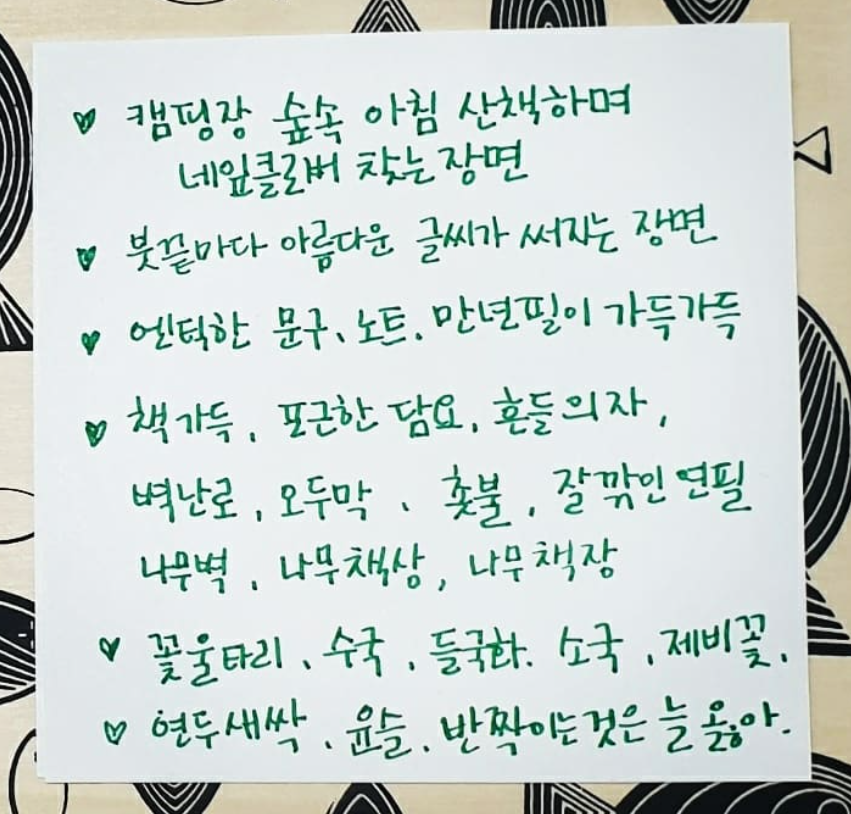 ♥ 캠핑장 숲속 아침 산책하며
네잎클로버 찾는 장면
♥ 붓끝마다 아름다운 글씨가 써지는 장면
♥ 엔틱한 문구、노트. 만년필이 가득가득
♥ 책가득, 포근한 담요, 흔들의자,
벽난로, 오두막、촛불, 잘깎인 연필
나무벽, 나무책상, 나무책장
♥ 꽃울타리、수국, 들국화. 소국, 제비꽃.
♥ 연두새싹、윤슬. 반짝이는것은 늘 옳아.